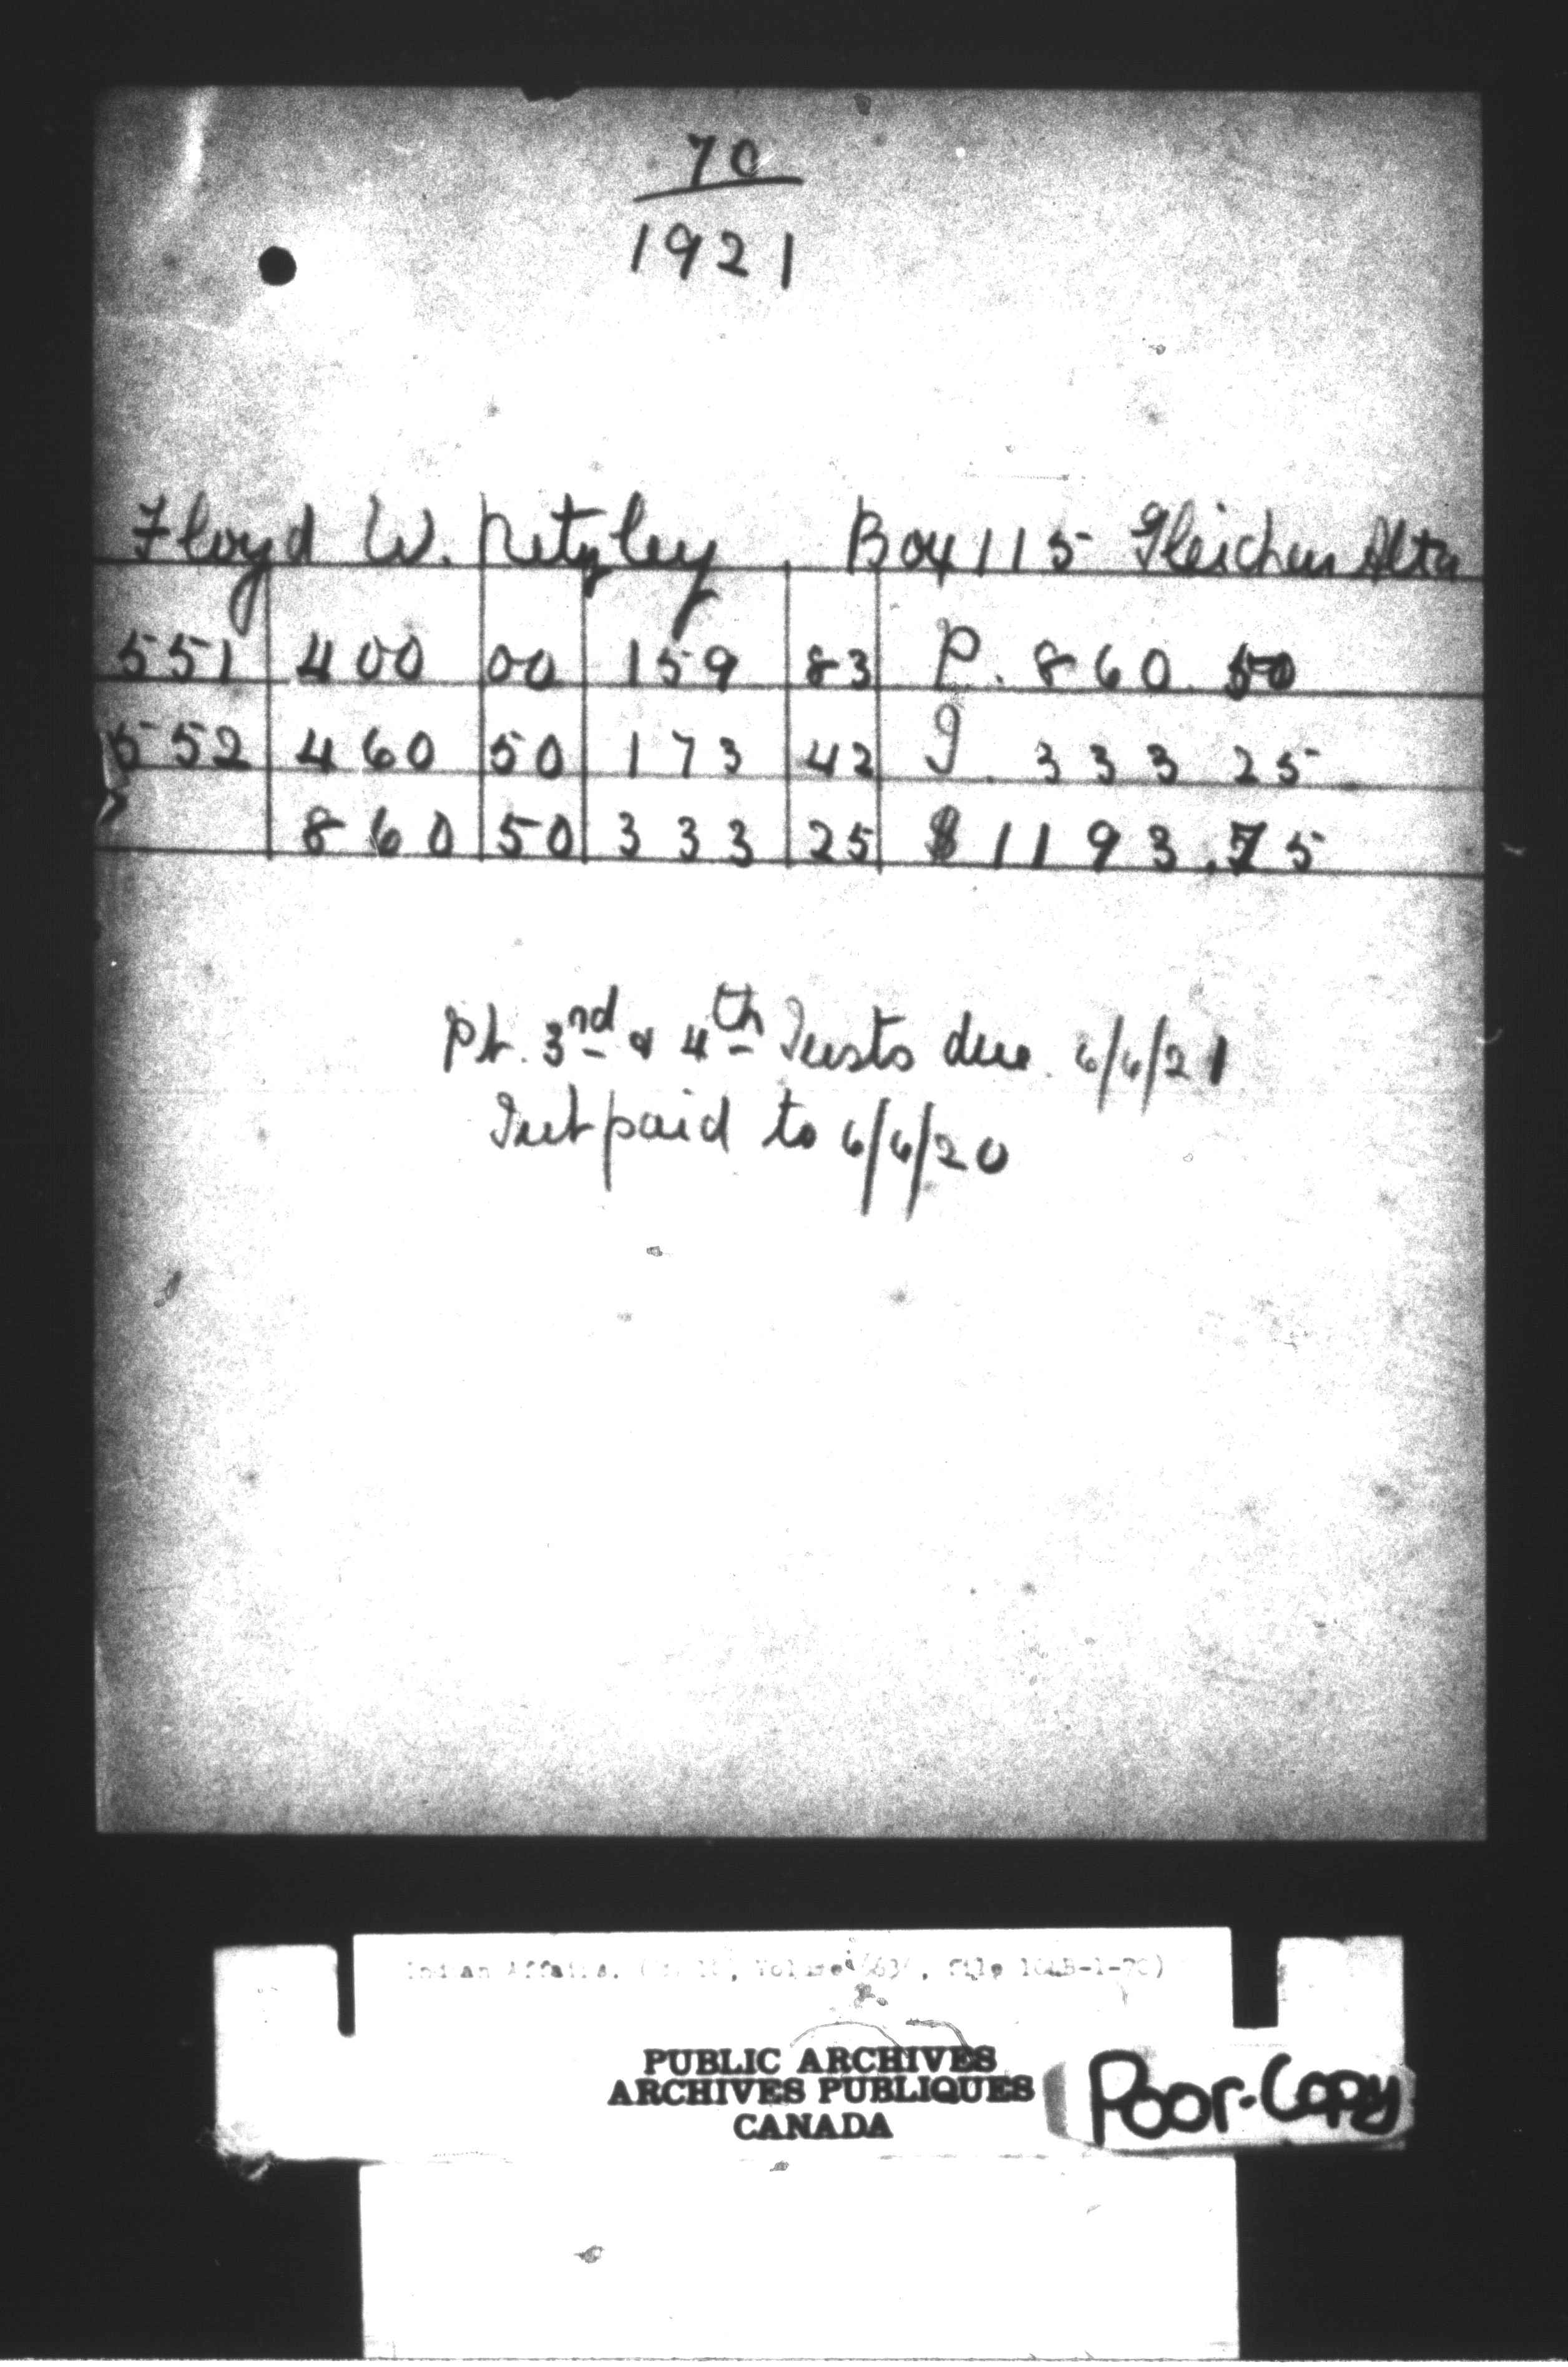 70
1921
Floyd W. Netzley Box 115 Gleichen Alta
551 400 00 159 83 P. 860.50
552 460 50 173 42 I. 333 25
860 50 333 25 $1193.75
Pt. 3rd & 4th Insts due. 6/6/21
Int paid to 6/6/20
Indian Affairs. (, Volume, File
PUBLIC ARCHIVES
ARCHIVES PUBLIQUES
CANADA
Poor-Copy